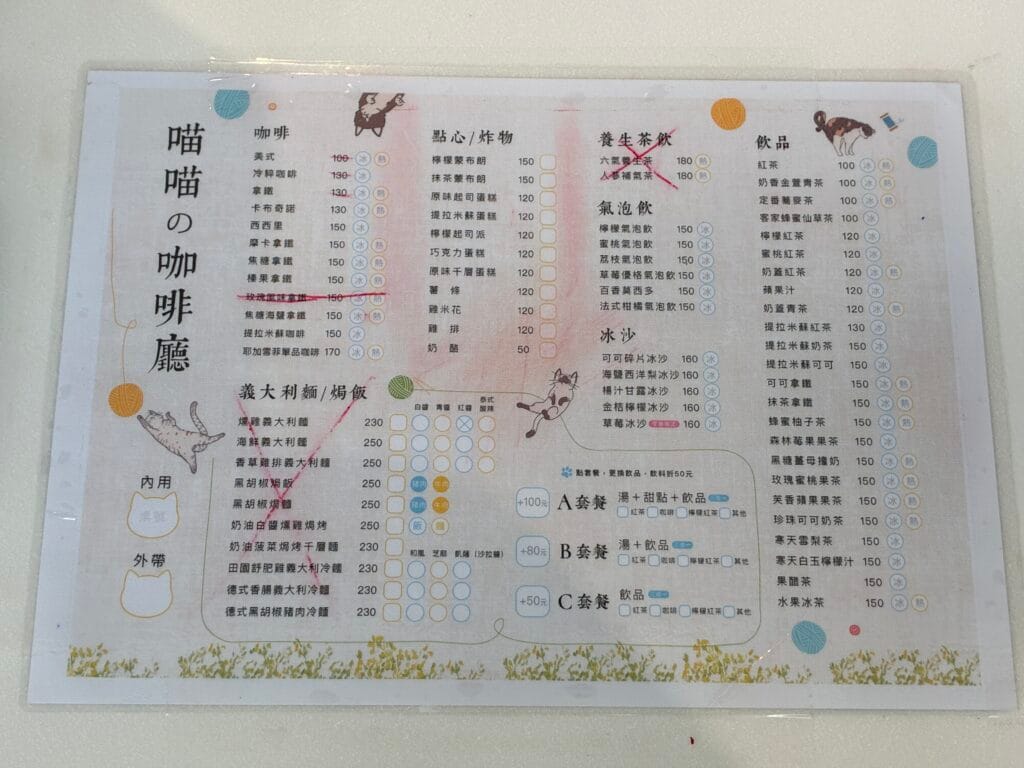 喵喵の咖啡廳
內用
桌號
外帶
咖啡
美式 100 冰 熱
冷粹咖啡 130 冰
拿鐵 130 冰 熱
卡布奇諾 130 冰 熱
西西里 150 冰
摩卡拿鐵 150 冰 熱
焦糖拿鐵 150 冰 熱
榛果拿鐵 150 冰 熱
玫瑰風味拿鐵 150 冰 熱
焦糖海鹽拿鐵 150 冰 熱
提拉米蘇咖啡 150 冰
耶加雪菲單品咖啡 170 冰 熱
點心/炸物
檸檬蒙布朗 150
抹茶蒙布朗 150
原味起司蛋糕 120
提拉米蘇蛋糕 120
檸檬起司派 120
巧克力蛋糕 120
原味千層蛋糕 120
薯條 120
雞米花 120
雞排 120
奶酪 50
養生茶飲
六氣養生茶 180 熱
人蔘補氣茶 180 熱
氣泡飲
檸檬氣泡飲 150 冰
蜜桃氣泡飲 150 冰
荔枝氣泡飲 150 冰
草莓優格氣泡飲 150 冰
百香莫西多 150 冰
法式柑橘氣泡飲 150 冰
冰沙
可可碎片冰沙 160 冰
海鹽西洋梨冰沙 160 冰
楊汁甘露冰沙 160 冰
金桔檸檬冰沙 160 冰
草莓冰沙 160 冰
飲品
紅茶 100 冰 熱
奶香金萱青茶 100 冰 熱
定番蕎麥茶 100 冰 熱
客家蜂蜜仙草茶 100 冰
檸檬紅茶 120 冰
蜜桃紅茶 120 冰
奶蓋紅茶 120 冰 熱
蘋果汁 120 冰
奶蓋青茶 120 冰 熱
提拉米蘇紅茶 130 冰
提拉米蘇奶茶 150 冰
提拉米蘇可可 150 冰
可可拿鐵 150 冰 熱
抹茶拿鐵 150 冰 熱
蜂蜜柚子茶 150 冰 熱
森林莓果果茶 150 冰
黑糖薑母撞奶 150 冰 熱
玫瑰蜜桃果茶 150 冰 熱
芙香蘋果果茶 150 冰 熱
珍珠可可奶茶 150 冰 熱
寒天雪梨茶 150 冰
寒天白玉檸檬汁 150 冰
果醋茶 150 冰
水果冰茶 150 冰 熱
義大利麵/焗飯
白醬 青醬 紅醬 泰式酸辣
燻雞義大利麵 230
海鮮義大利麵 250
香草雞排義大利麵 250
黑胡椒焗飯 250 豬肉 牛肉
黑胡椒焗麵 250 豬肉 牛肉
奶油白醬燻雞焗烤 230 飯 麵
奶油菠菜焗烤千層麵 230
和風 芝麻 凱薩 (沙拉醬)
田園舒肥雞義大利冷麵 230
德式香腸義大利冷麵 230
德式黑胡椒豬肉冷麵 230
點套餐，更換飲品，飲料折50元
+100元 A套餐 湯+甜點+飲品
紅茶 咖啡 檸檬紅茶 其他
+80元 B套餐 湯+飲品
紅茶 咖啡 檸檬紅茶 其他
+50元 C套餐 飲品
紅茶 咖啡 檸檬紅茶 其他